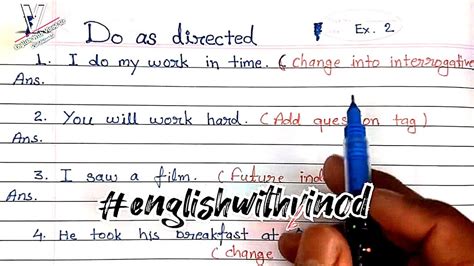 Do as directed
Ex. 2
1. I do my work in time. (change into interrogative
Ans.
2. You will work hard. (Add question tag)
Ans.
3. I saw a film. (Future ind
Ans.
#englishwithvinod
4. He took his breakfast at
(change